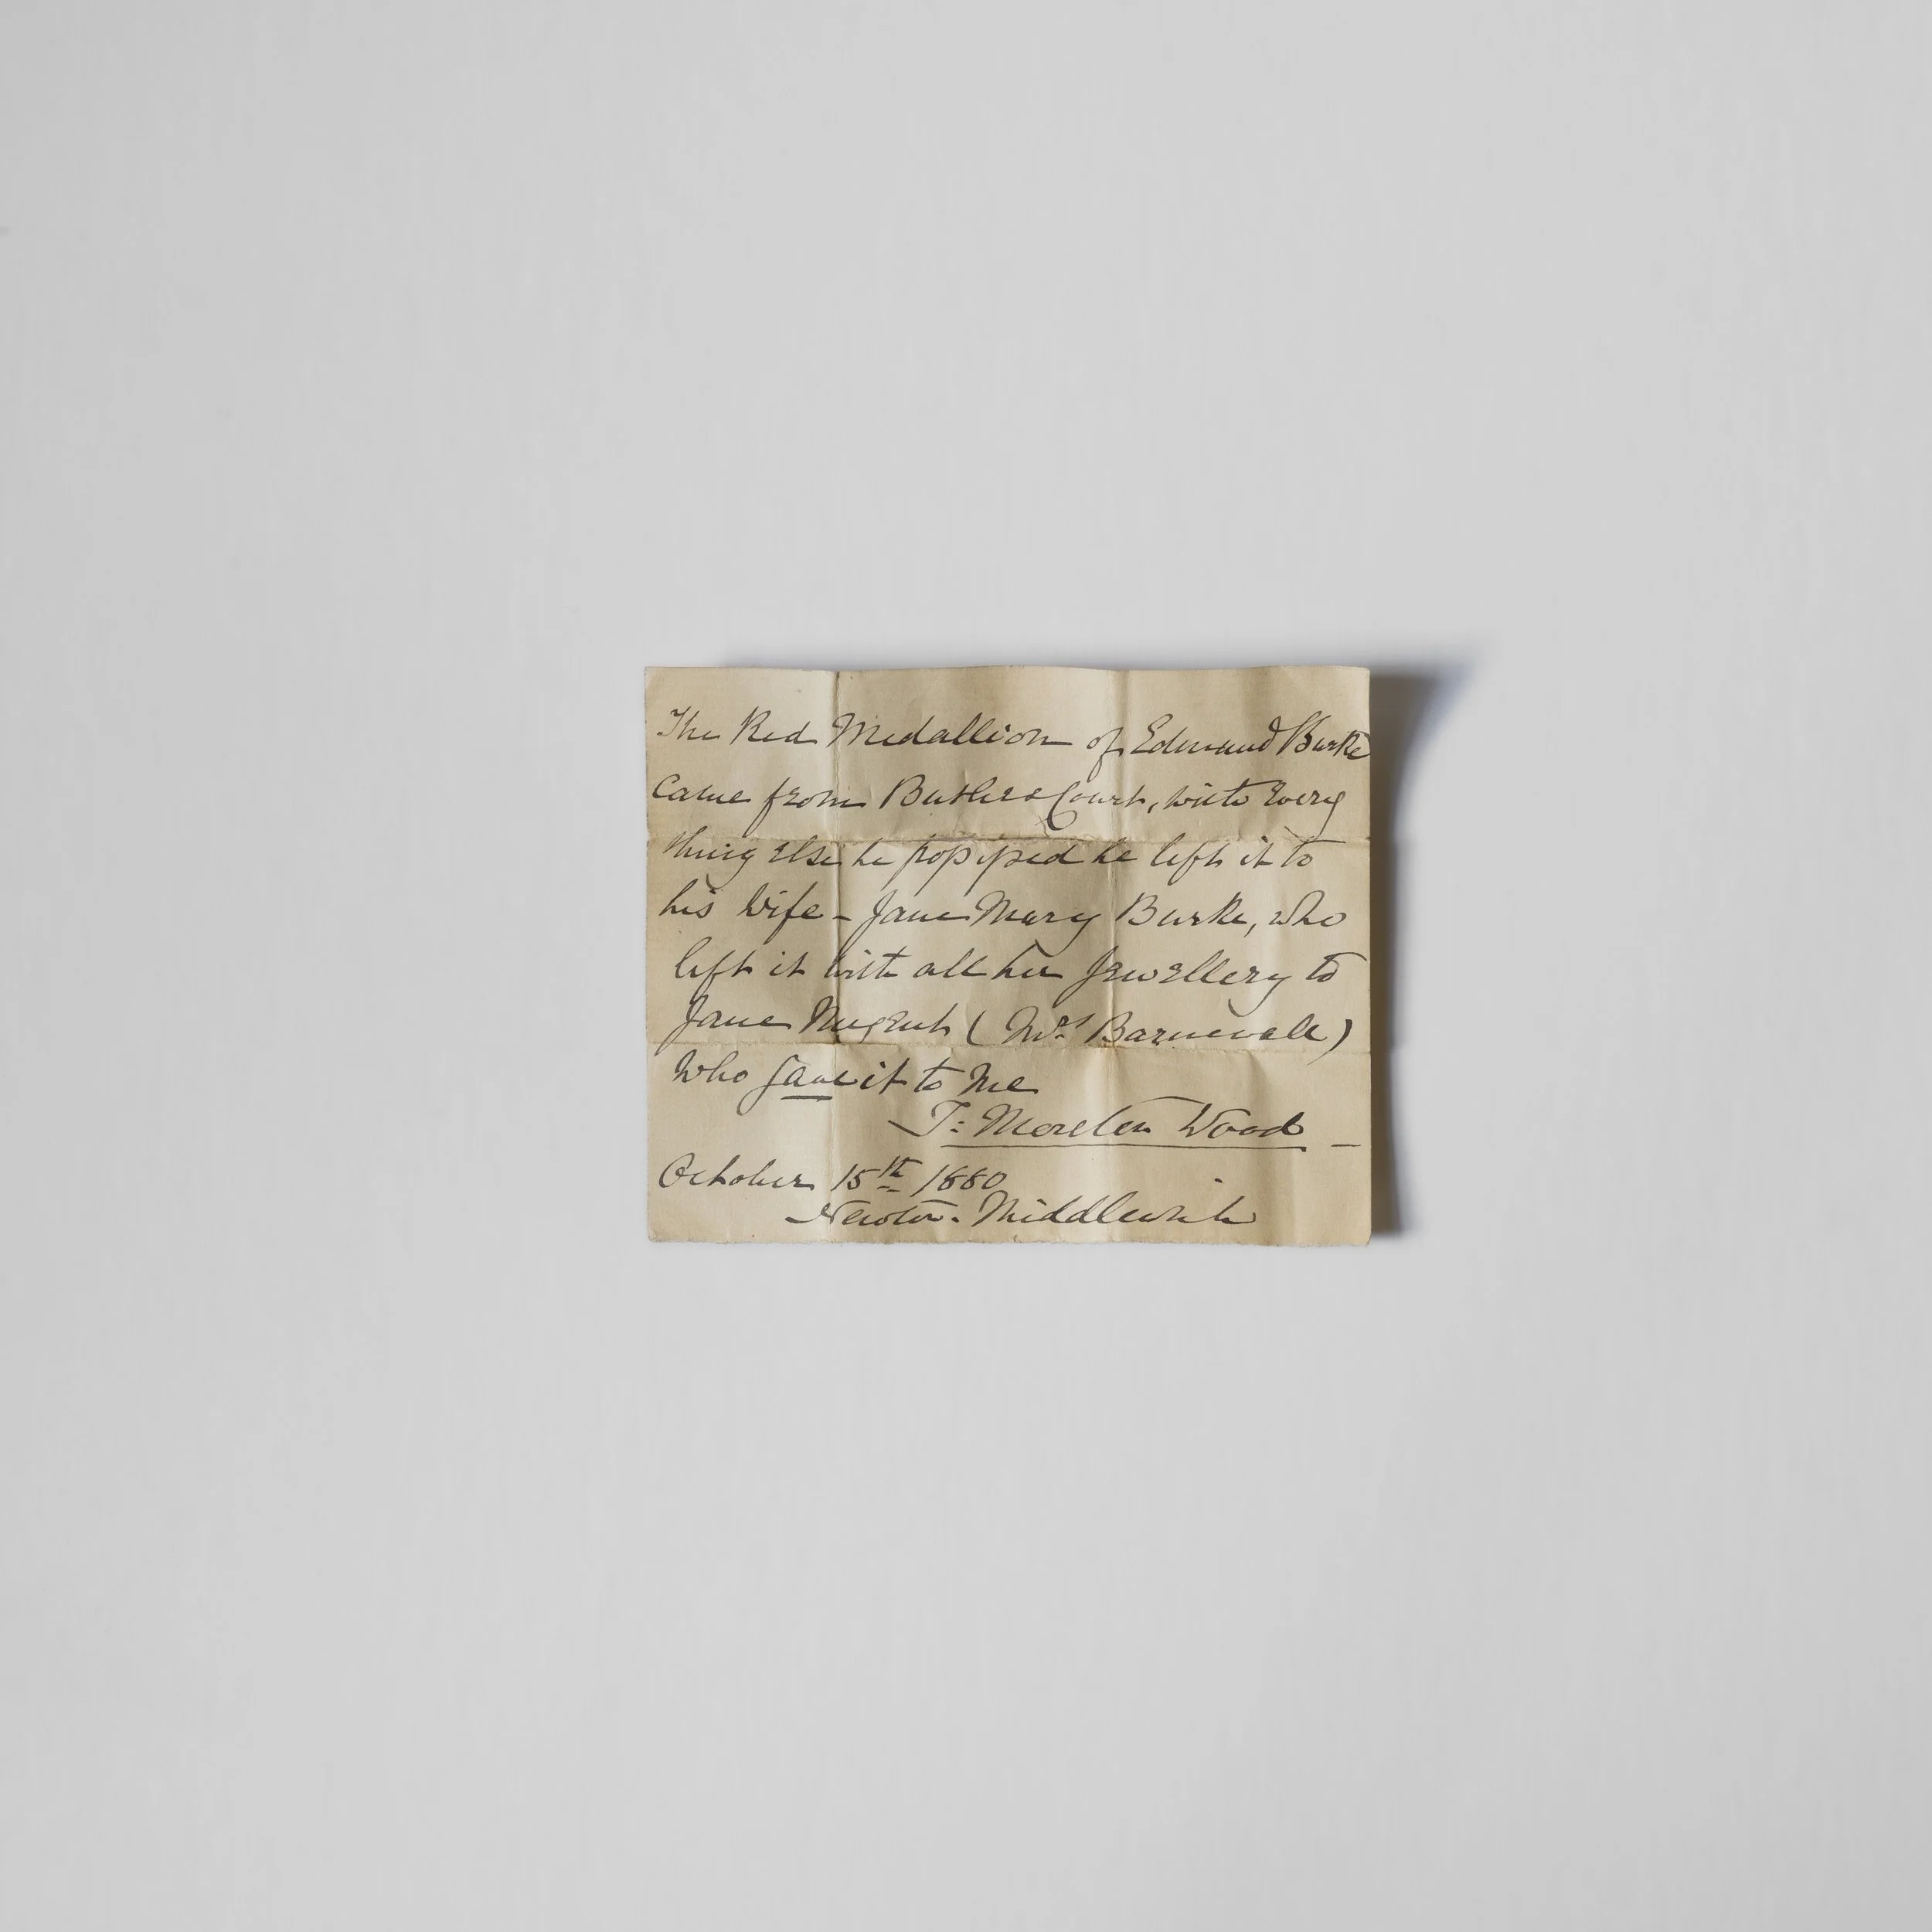 The Red Medallion of Edmund Burke
Came from Butlers Court, with every
thing else he possessed he left it to
his Wife – Jane Mary Burke, who
left it with all her Jewellery to
Jane Nugent ( Mrs Barnewall )
Who gave it to Me
T: Moreton Wood –
October 15th 1880
Newton. Middlewich